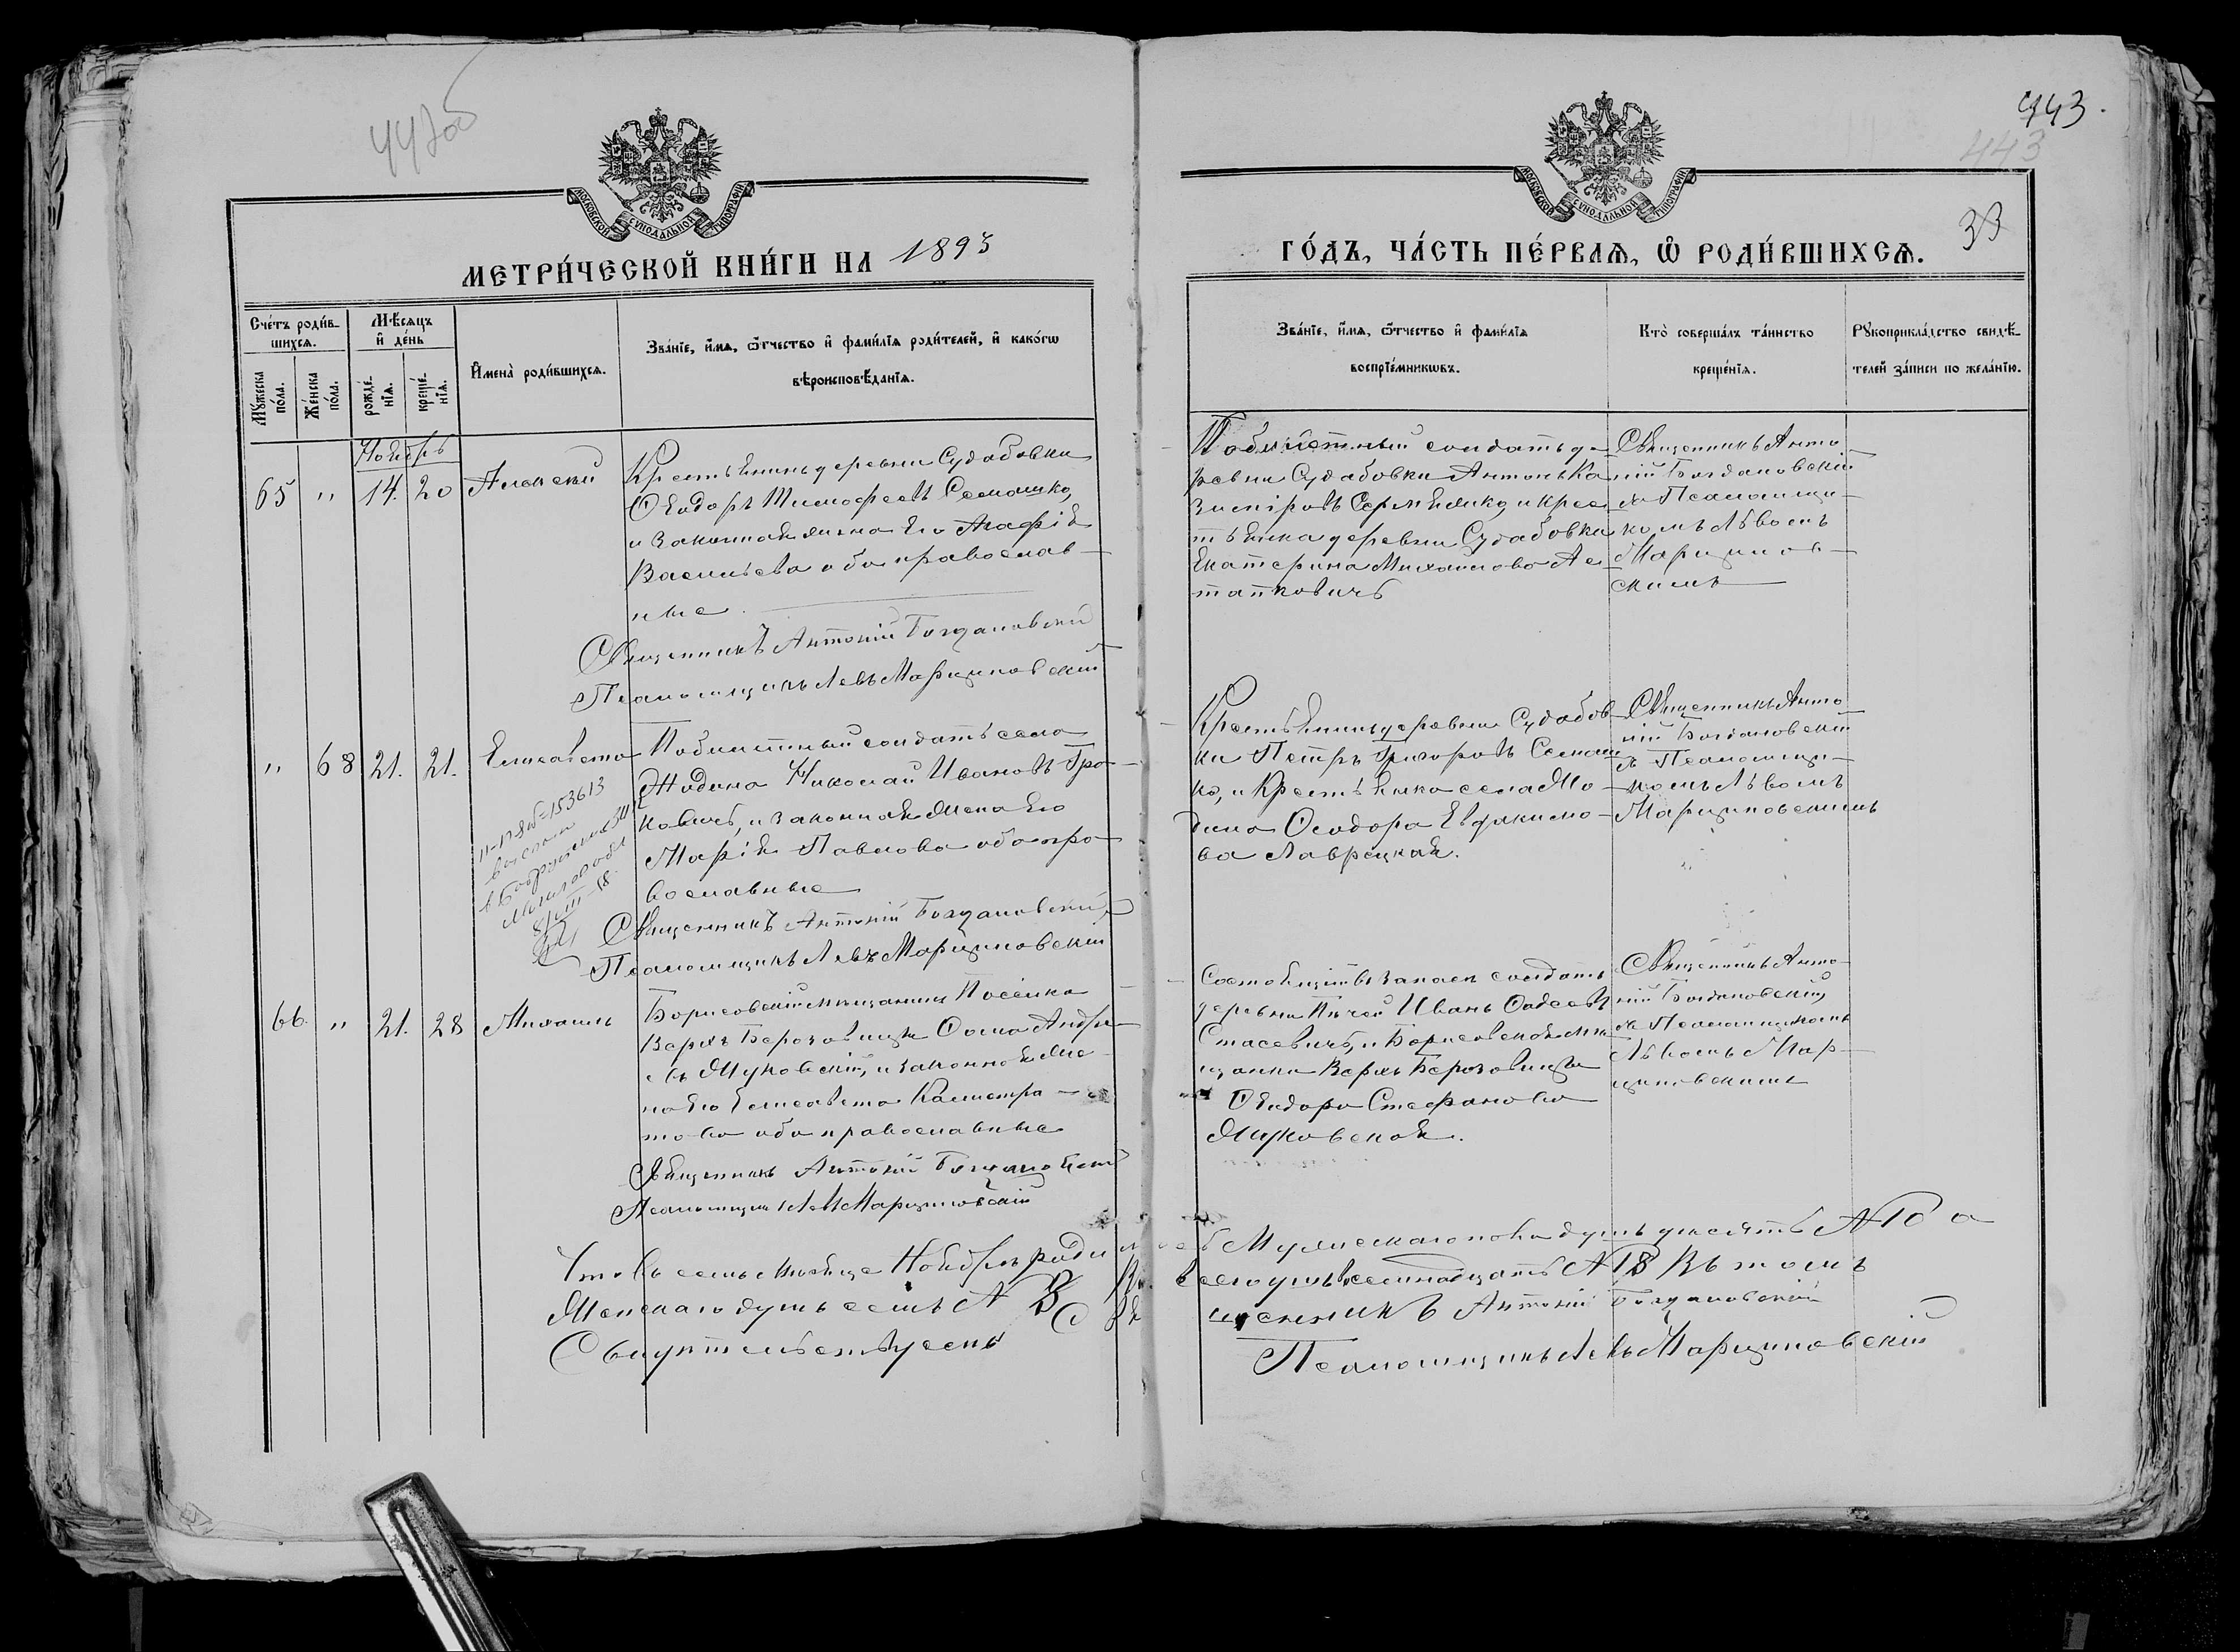 442об
МОСКОВСКОЙ СѴНОДАЛЬНОЙ ТИПОГРАФИИ
МЕТРИ́ЧЕСКОЙ КНИ́ГИ НА 1893
Сче́тъ роди́в-
шихсѧ.
Мꙋ́жеска по́ла.
Же́нска по́ла.
Мѣ́сѧцъ и де́нь
рожде́-
нїѧ.
креще́-
нїѧ.
Имена̀ роди́вшихсѧ.
Зва́нїе, и́мѧ, ѻ́тчество и фами́лїѧ роди́телей, и како́гѡ
вѣроисповѣ́данїѧ.
Ноябрь
65 " 14. 20 Алексѣй
Крестьянинъ деревни Судобовки
Ѳеодоръ Тимофеевъ Семашко,
и законная жена его Агафія
Васильева оба православ-
ные
Священникъ Антоній Богдановскій
Псаломщикъ Левъ Марциновскій
" 68 21. 21. Елисавета
Побилетный солдатъ села
Жодина Николай Ивановъ Гро-
ковичъ, и законная жена его
Марія Павлова оба пра-
вославные
Священникъ Антоній Богдановскій
Псаломщикъ Левъ Марциновскій
66. " 21. 28 Михаилъ
Борисовскій мѣщанинъ Посёлка
Верхъ Березовицы Ѳома Андре-
евъ Жуковскій, и законная же-
на его Елисавета Калистра-
това оба православные
Священникъ Антоній Богдановскій
Псаломщикъ Левъ Марциновскій
Что въ семъ мѣсяцѣ Ноябрѣ роди
Женскаго душъ
Свидѣтельствуемъ
443.
443
33
МОСКОВСКОЙ СѴНОДАЛЬНОЙ ТИПОГРАФИИ
ГО́ДЪ, ЧА́СТЬ ПЕ́РВАѦ, Ѡ РОДИ́ВШИХСѦ.
Зва́нїе, и́мѧ, ѻ́тчество и фами́лїѧ
воспрїе́мникѡвъ.
Кто̀ соверша́лъ та́инство
креще́нїѧ.
Рꙋкоприкла́дство свидѣ́-
телей за́писи по жела́нїю.
Побилетный солдатъ де-
ревни Судобовки Антонъ Ка
зиміровъ и крес
тьянка деревни Судобовки
Екатерина Михайлова Ас
тапковичъ
Священникъ Анто
ній Богдановскій
съ Псаломщи-
комъ Львомъ
Марцинов-
скимъ
Крестьянинъ деревни Судобов-
ки Петръ Григоровъ Семаш
ко, и Крестьянка села Жо-
дина Ѳеодора Евдокимо-
ва Лаврецкая.
Священникъ Анто
ній Богдановскій
съ Псаломщи-
комъ Львомъ
Марциновскимъ
Состоящій въ запасѣ солдатъ
деревни Пічей Иванъ Фадеевъ
Стасевичъ, и Борисовская мѣ
щанка Верхъ Березовицы
Ѳеодора Стефанова
Жуковская.
Священникъ Анто-
ній Богдановскій,
съ Псаломщикомъ
Львомъ Мар-
циновскимъ
Мужескаго пола душъ десять №10 а
всего душъ семнадцать Въ томъ
щенникъ Антоній Богдановскій
Псаломщикъ Левъ Марциновскій